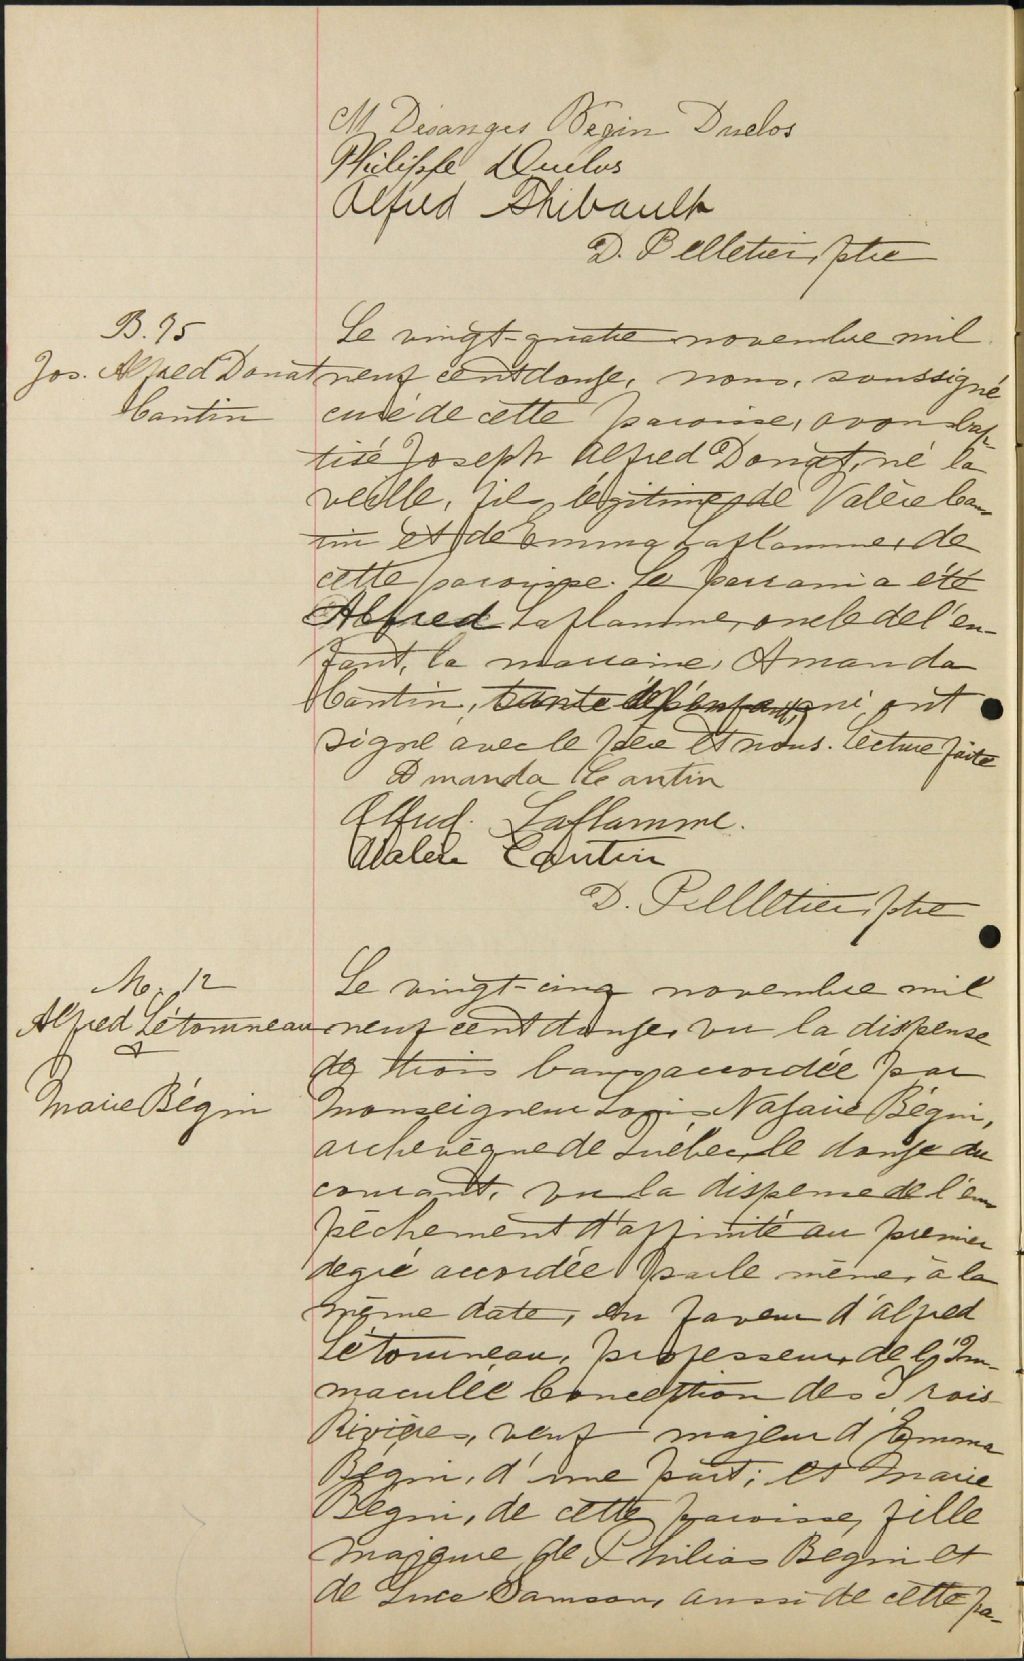 M Désanges Bégin Duclos
Philippe Duclos
Alfred Thibault
D. Pelletier, ptre
B. 75
Jos. Alfred Donat
Cantin
Le vingt-quatre novembre mil
neuf cent douze, nous, soussigné
curé de cette paroisse, avons bap-
tisé Joseph Alfred Donat, né la
veille, fils légitime de Valère Can-
tin et de Emma Laflamme, de
cette paroisse. Le parrain a été
Alfred Laflamme, oncle de l'en-
fant, la marraine, Amanda
Cantin, tante de l'enfant, qui ont
signé avec le père et nous. Lecture faite
Amanda Cantin
Alfred Laflamme.
Valère Cantin
D. Pellletier, ptre
M. 12
Alfred Létourneau
&
Marie Bégin
Le vingt-cinq novembre mil
neuf cent douze, vu la dispense
de trois bans accordée par
Monseigneur Louis Nazaire Bégin,
archevêque de Québec, le douze du
courant, vu la dispense de l'em
pêchement d'affinité au premier
degré accordée par le même, à la
même date, en faveur d'Alfred
Létourneau, professeur, de l'Im-
maculée Conception des Trois
Rivières, veuf majeur d'Emma
Bégin, d'une part; et Marie
Bégin, de cette paroisse, fille
majeure de Philias Begin et
de Luce Samson, aussi de cette pa-